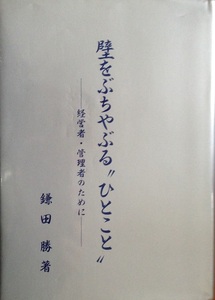 壁をぶちやぶる〝ひとこと〟
――経営者・管理者のために――
鎌田 勝著